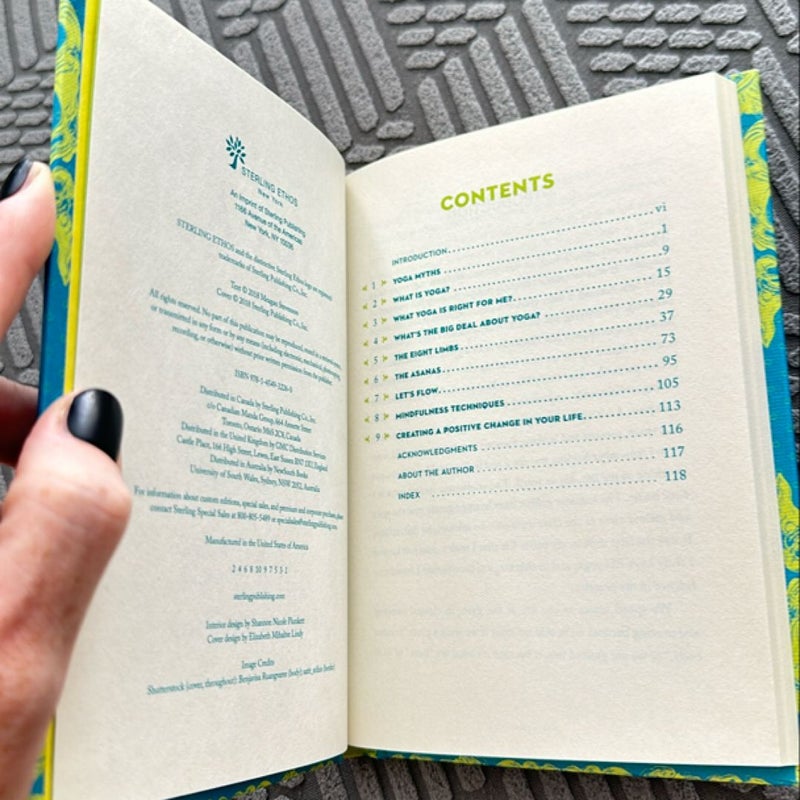 STERLING ETHOS
New York
An Imprint of Sterling Publishing
1166 Avenue of the Americas
New York, NY 10036
STERLING ETHOS and the distinctive Sterling Ethos logo are registered
trademarks of Sterling Publishing Co., Inc.
Text © 2018 Meagan Stevenson
Cover © 2018 Sterling Publishing Co., Inc.
All rights reserved. No part of this publication may be reproduced, stored in a retrieval system,
or transmitted in any form or by any means (including electronic, mechanical, photocopying,
recording, or otherwise) without prior written permission from the publisher.
ISBN 978-1-4549-3226-0
Distributed in Canada by Sterling Publishing Co., Inc.
c/o Canadian Manda Group, 664 Annette Street
Toronto, Ontario M6S 2C8, Canada
Distributed in the United Kingdom by GMC Distribution Services
Castle Place, 166 High Street, Lewes, East Sussex BN7 1XU, England
Distributed in Australia by NewSouth Books
University of South Wales, Sydney, NSW 2052, Australia
For information about custom editions, special sales, and premium and corporate purchases, please
contact Sterling Special Sales at 800-805-5489 or specialsales@sterlingpublishing.com.
Manufactured in the United States of America
2 4 6 8 10 9 7 5 3 1
sterlingpublishing.com
Interior design by Shannon Nicole Plunkett
Cover design by Elizabeth Mihaltse Lindy
Image Credits
Shutterstock (cover, throughout): Benjavisa Ruangvaree (body);
CONTENTS
INTRODUCTION vi
1 YOGA MYTHS 1
2 WHAT IS YOGA? 9
3 WHAT YOGA IS RIGHT FOR ME? 15
4 WHAT'S THE BIG DEAL ABOUT YOGA? 29
5 THE EIGHT LIMBS 37
6 THE ASANAS 73
7 LET'S FLOW 95
8 MINDFULNESS TECHNIQUES 105
9 CREATING A POSITIVE CHANGE IN YOUR LIFE 113
ACKNOWLEDGMENTS 116
ABOUT THE AUTHOR 117
INDEX 118